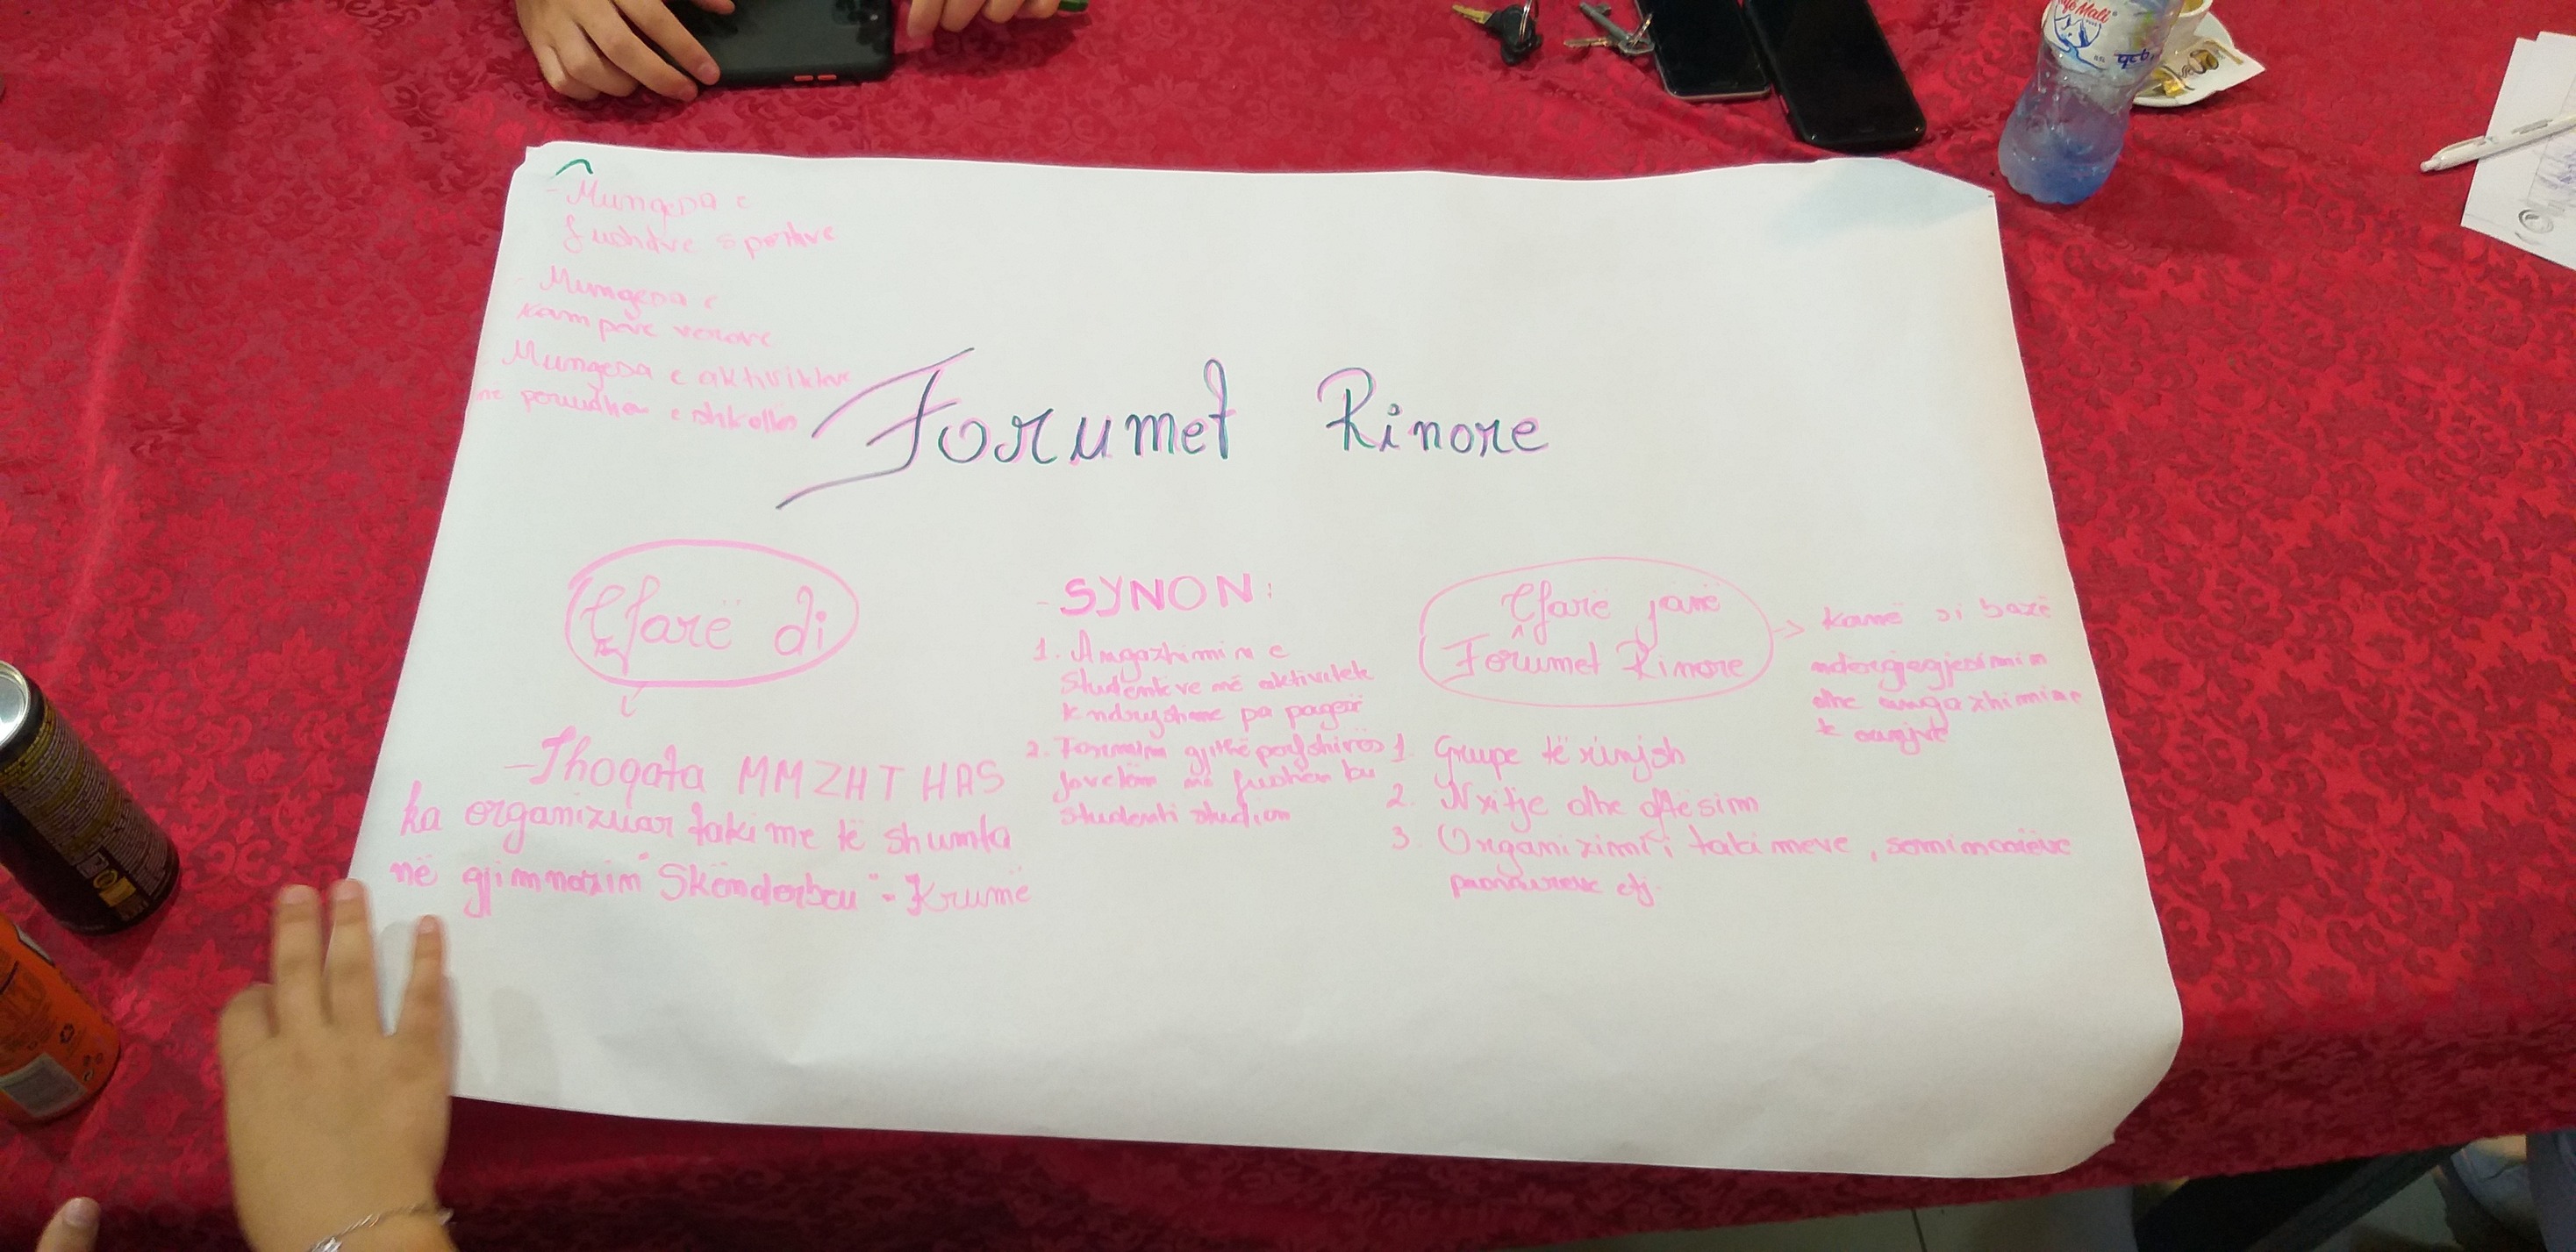 - Mungesa e
fushave sportive
- Mungesa e
kampeve verore
Mungesa e aktiviteteve
në periudhën e shkollës
Forumet Rinore
Çfarë di
- Shoqata MMZHT HAS
ka organizuar takime të shumta
në gjimnazin "Skënderbeu" - Krumë
- SYNON:
1. Angazhimin e
studentëve në aktivitete
të ndryshme pa pagesë
2. Formimin gjithë përfshirës
studenti studion
Çfarë janë
Forumet Rinore
kanë si bazë
ndërgjegjësimin
dhe angazhimin e
të rinjve
1. Grupe të rinjsh
2. Nxitje dhe aftësim
3. Organizimi i takimeve, seminareve
panaireve etj.